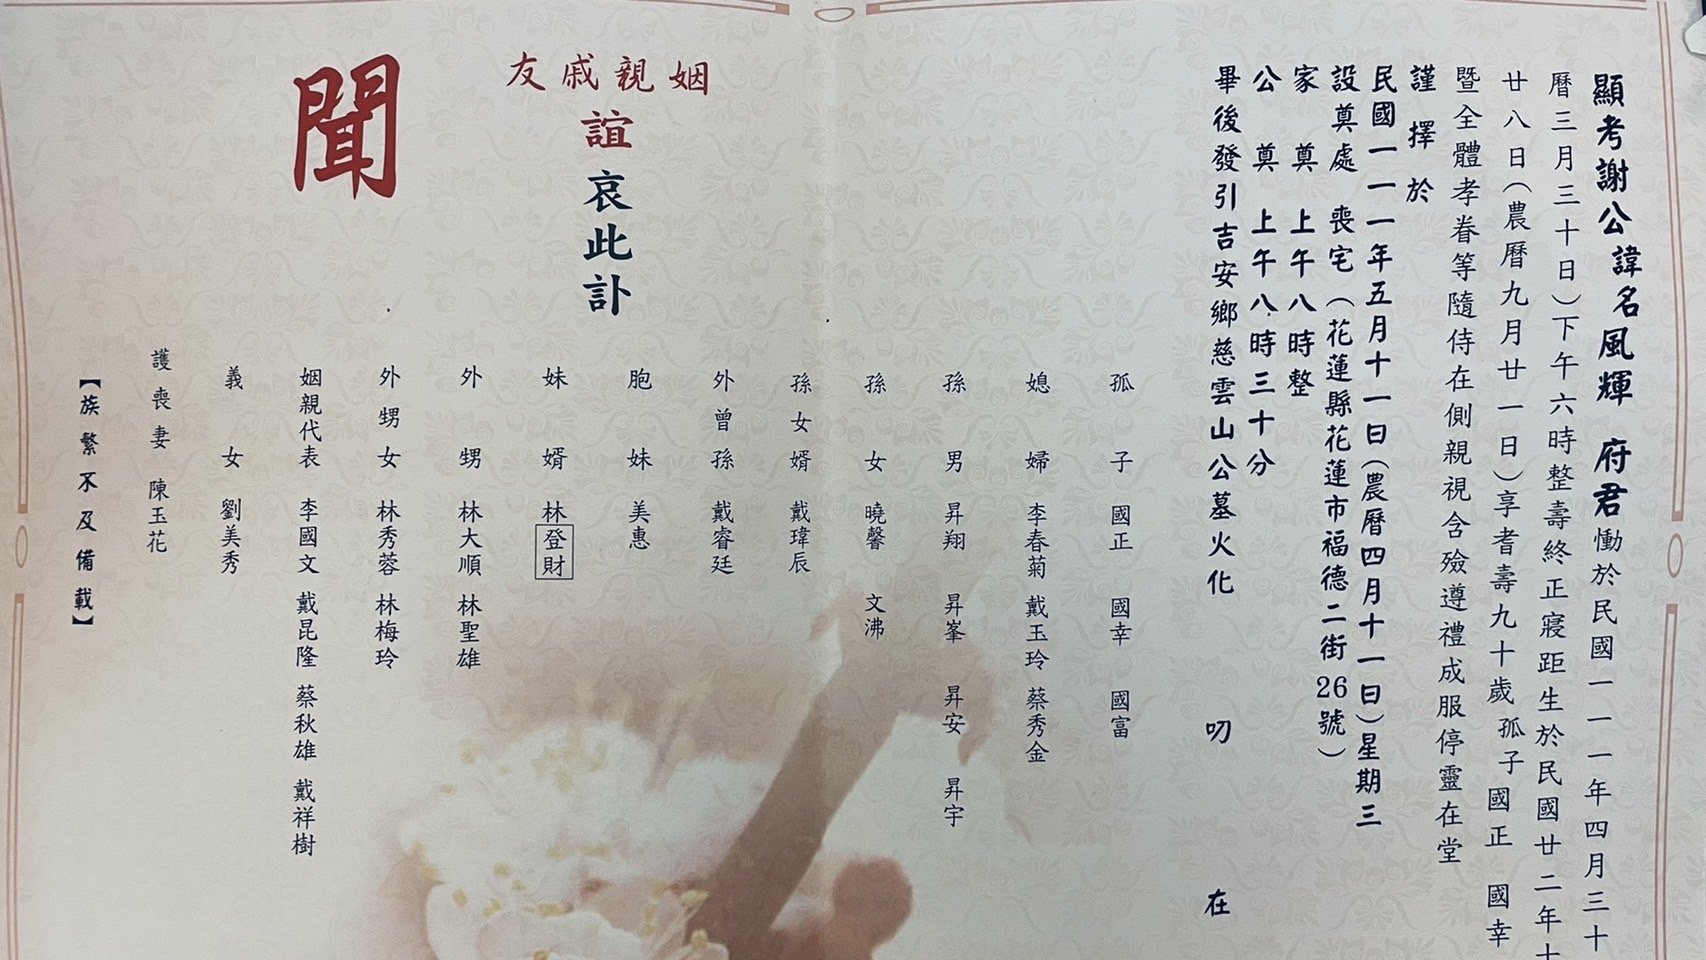 顯考謝公諱名風輝 府君慟於民國一一一年四月三十
曆三月三十日)下午六時整壽終正寢距生於民國廿二年十
廿八日(農曆九月廿一日)享耆壽九十歲 孤子 國正 國幸
暨全體孝眷等隨侍在側親視含殮遵禮成服停靈在堂
謹擇於
民國一一一年五月十一日(農曆四月十一日)星期三
設奠處 喪宅(花蓮縣花蓮市福德二街26號)
家奠 上午八時整
公奠 上午八時三十分
畢後發引吉安鄉慈雲山公墓火化 叨 在
孤子 國正 國幸 國富
媳婦 李春菊 戴玉玲 蔡秀金
孫男 昇翔 昇峯 昇安 昇宇
孫女 曉馨 文沸
孫女婿 戴瑋辰
外曾孫 戴睿廷
胞妹 美惠
妹婿 林登財
外甥 林大順 林聖雄
外甥女 林秀蓉 林梅玲
姻親代表 李國文 戴昆隆 蔡秋雄 戴祥樹
義女 劉美秀
護喪妻 陳玉花
【族繁不及備載】
姻親戚友
誼哀此訃
聞